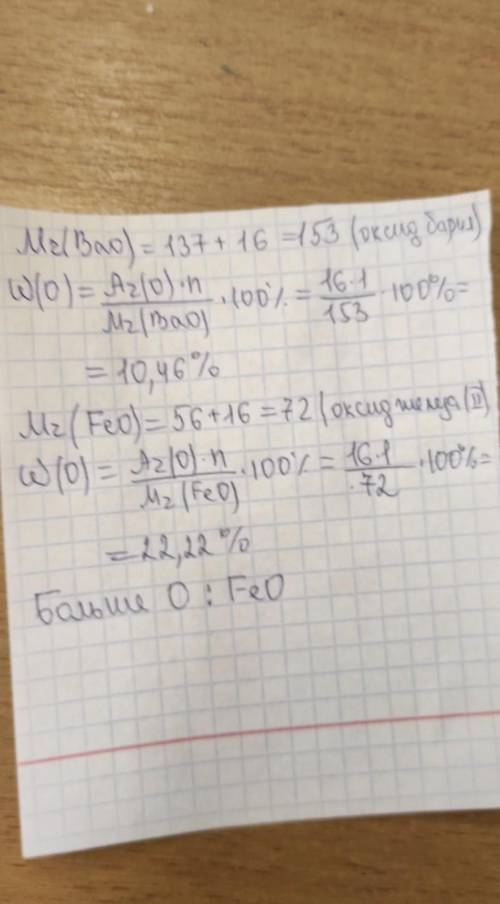 Mr(BaO) = 137 + 16 = 153 (оксид бария)
W(O) = Ar(O)·n / Mr(BaO) · 100% = 16·1 / 153 · 100% =
= 10,46%
Mr(FeO) = 56 + 16 = 72 (оксид железа (II)
W(O) = Ar(O)·n / Mr(FeO) · 100% = 16·1 / 72 · 100% =
= 22,22%
Больше O : FeO